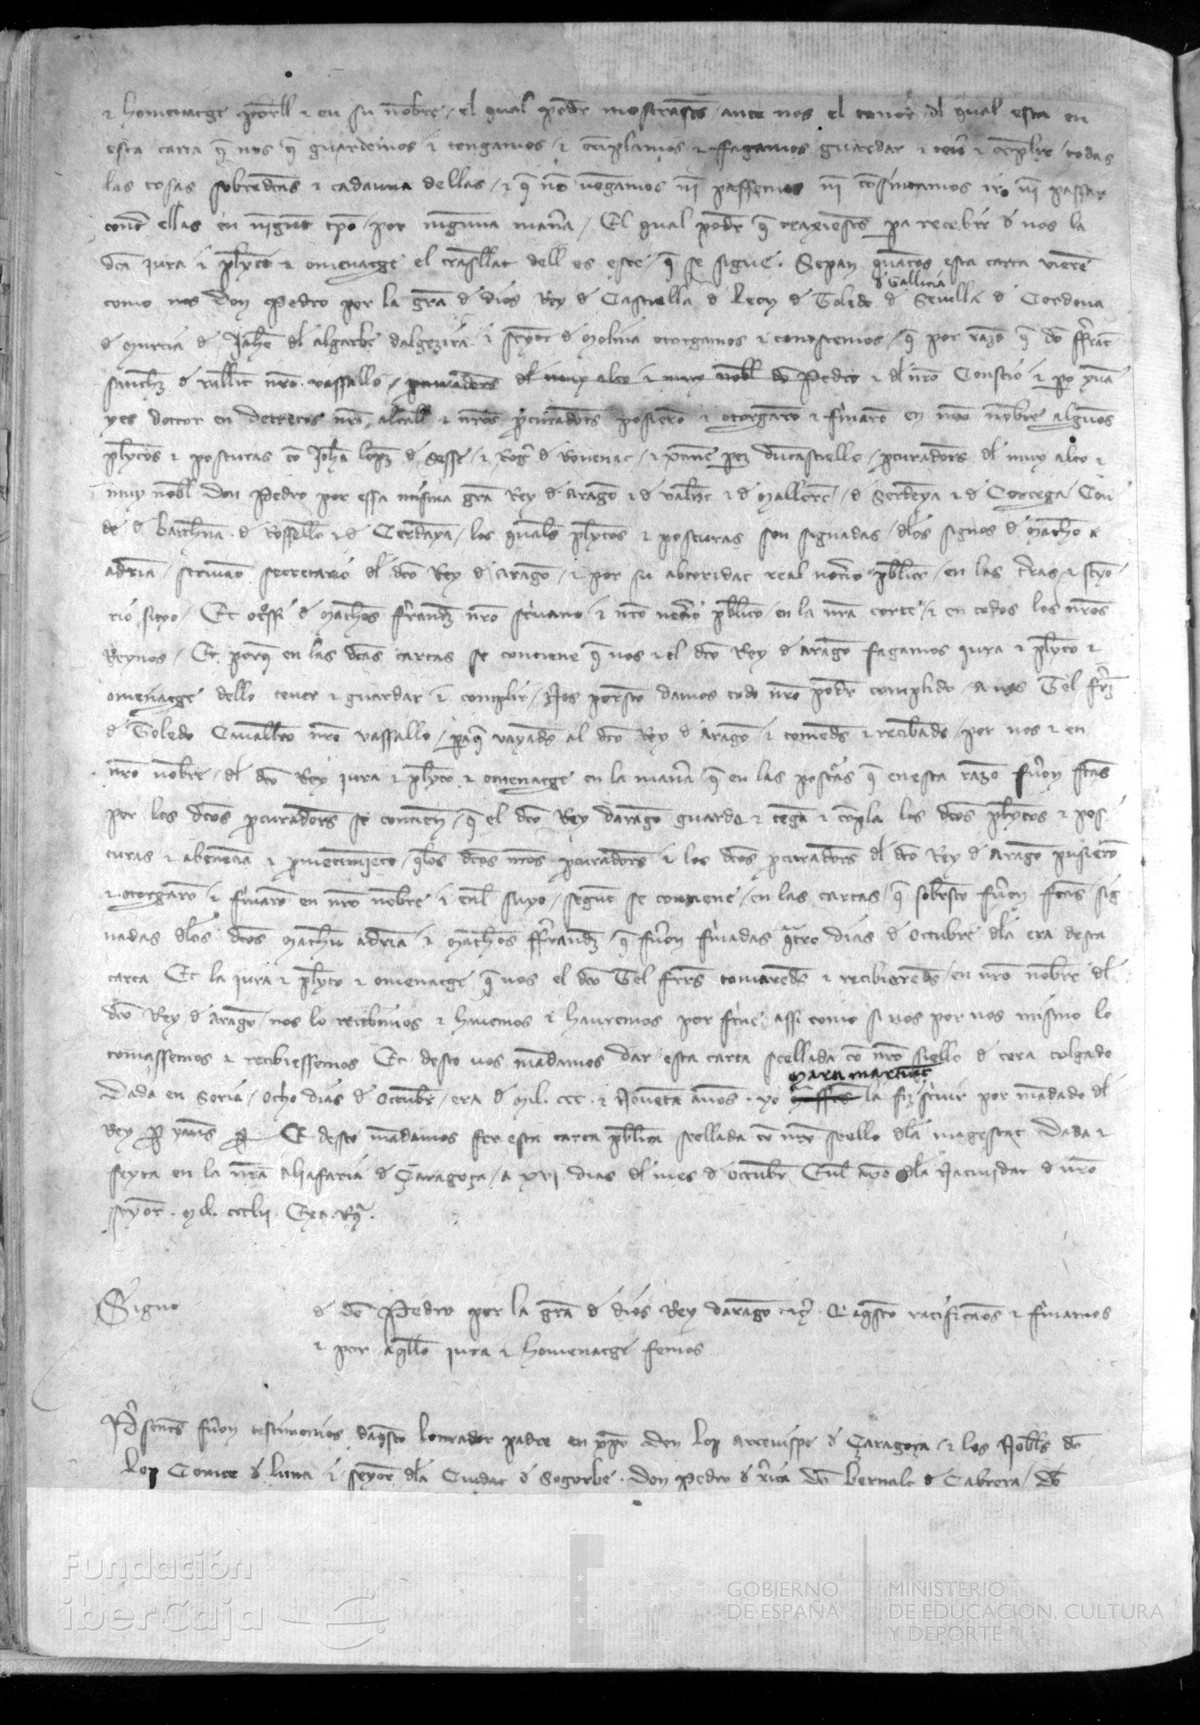 & homenatge por ell & en su nobre / el qual poder mostrastes ante nos el tenor dl qual esta en
esta carta q nos q guardemos & tengamos & cumplamos & fagamos guardar & tener & complir todas
las cosas sobredcas & cadauna dellas / & q no vengamos ni passemos ni consintamos ir ni passar
contra ellas en nigun tpo por ninguna mana / El qual poder q traxiestes pa recebir d nos la
dca jura & plyto & omenatge el trasllat dell es este q se sigue . Sepan quantos esta carta vieren
como nos Don Pedro por la gra d dios Rey d Castiella d Leon d Toledo d Gallicia d Sevilla d Cordova
d Murcia d Jahen dl algarbe dalgezira & senyor d Molina otorgamos & conoscemos q por razo q do ffrant
sanchz d vallit nro vassallo / dl muy alto & muy nobl do Pedro & dl nro Conseio & po yuan
yes doctor en decretos nro alcall & nros pcuradors posiero & otorgaro & firmaro en nro nobre algunos
plytos & posturas co Joha lopz d Sesse & Rog d Rovenac & pcuradors dl muy alto &
muy nobl Don Pedro por essa misma gra Rey d arago & d valenc & d Mallorc / d Serdenya & d Corcega Con
de d barchna d Rossello & d Cerdaya / los quals plytos & posturas son signadas dlos signos d Matheo
adria scrivano secretario dl dco Rey d arago & por su abtoridat real notario publico en las tras & senyo
rio suyo / Et otrossi d Matheos ferrandz nro scrivano & nro notario publico en la nra corte & en todos los nros
Reynos / Et porq en las dcas cartas se contiene q nos & el dco Rey d arago fagamos jura & plyto &
omenatge dello tener & guardar & complir / Nos por esto damos todo nro poder complido a vos Tel frrz
d Toledo Cavallero nro vassallo / paq vayads al dco Rey d arago & tomeds & recibads por nos & en
nro nobre dl dco Rey jura & plyto & omenatge en la mana q en las posturas q en esta razo furon fcas
por los dcos pcuradors se contien / q el dco Rey darago guarde & tega & copla los dcos plytos & pos
turas & abenencia & q los dcos nros pcuradors & los dcos pcuradors dl dco Rey d arago pusiero
& otorgaro & firmaro en nro nobre & enl suyo segunt se contiene en las cartas q sobresto furon fcas sig
nadas dlos dcos Matheu adria & Matheos ffrandz q furon firmadas quatro dias d Octubre dla era desta
carta Et la jura & plyto & omenatge q vos el dco Tel frrs tomareds & recibiereds en nro nobre dl
dco Rey d arago nos lo recebimos & havemos & hauremos por firme assi como si nos por nos mismo lo
tomassemos & recibiessemos Et desto vos madamos dar esta carta seellada co nro siello d cera colgado
Dada en Soria / Ocho dias d Octubr / era d Mil. CCC. & Noventa annos . yo mara martinz la fiz scrivir por madado dl
Rey po yans Et desto madamos fer esta carta publica seellada co nro seello dla magestat Dada &
feyta en la nra aliafaria d Çaragoça / a xvi dias dl mes d Octubr Enl ayo dla Natividat d nro
senyor . Mil. CCCLII.
Signo d do Pedro por la gra d dios Rey darago &c. Q aqsto ratificamos & firmamos
& por aqllo jura & homenatge femos
Psents furon testimonios daqsto lonrador padre en xpo Don Lop arcevispe d Çaragoça & los Nobls do
Lop Comte d Luna & senyor dla Ciudat d Sogorbe . Don Pedro d Xerica Do bernalt d Cabrera / Do
Fundación
iberCaja
GOBIERNO
DE ESPAÑA
MINISTERIO
DE EDUCACIÓN, CULTURA
Y DEPORTE